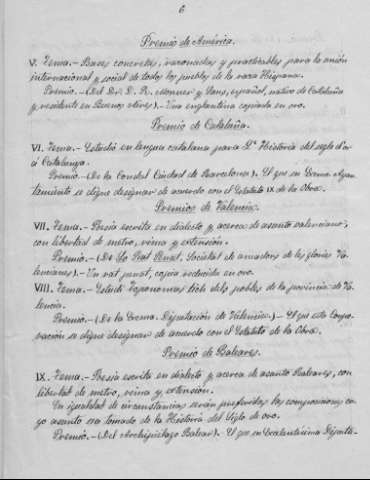 6
Premio de América.
V. Tema.- Bases concretas, razonadas y practicables para la unión
internacional y social de todos los pueblos de la raza Hispana.
Premio.- (Del Dr. D. R. Monner y Sans, español, nativo de Cataluña
y residente en Buenos Aires).- Una englantina copiada en oro.
Premio de Cataluña.
VI. Tema.- Estudió en lengua catalana para L'Historia del sigle d'or
á Catalunya.
Premio.- (De la Condal Ciudad de Barcelona). El que su Excma. Ayun-
tamiento se digne designar de acuerdo con el Estatuto IX de la Obra.
Premios de Valencia.
VII. Tema.- Poesia escrita en dialecto y acerca de asunto valenciano,
con libertad de metro, rima y extensión.
Premio.- (De Lo Rat Penat. Societat de amadors de les glories Va-
lencianes).- Un rat penat, copia reducida en oro.
VIII. Tema.- Estudi toponomastich dels pobles de la provincia de Va-
lencia.
Premio.- (De la Excma. Diputación de Valencia).- El que esta Corpo-
ración se digne designar de acuerdo con el Estatuto de la Obra.
Premio de Baleares.
IX. Tema.- Poesia escrita en dialecto y acerca de asunto Baleares, con
libertad de metro, rima y extensión.
En igualdad de circunstancias serán preferidas las composiciones cu-
yo asunto sea tomado de la Historia del Siglo de oro.
Premio.- (Del Archipiélago Balear). El que su Excalentísima Diputa-